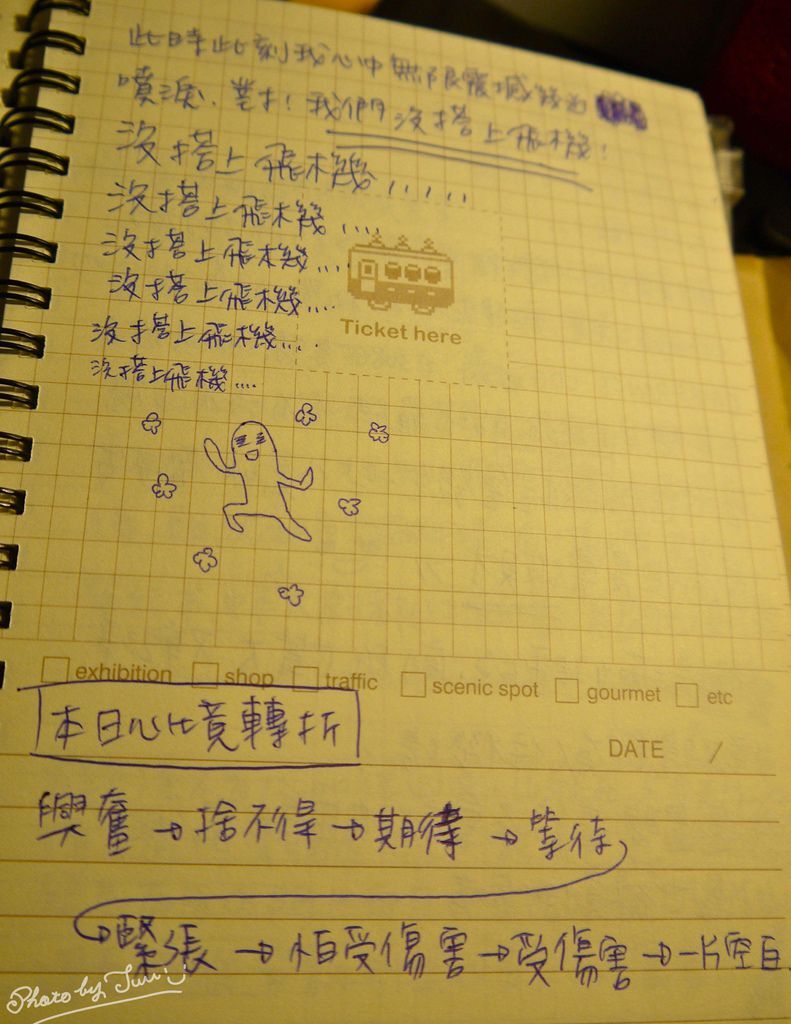 此時此刻我心中無限震撼錢的
噴淚. 對! 我們沒搭上飛機!
沒搭上飛機.....
沒搭上飛機....
沒搭上飛機....
沒搭上飛機....
沒搭上飛機....
沒搭上飛機....
Ticket here
exhibition shop traffic scenic spot gourmet etc
本日心境轉折
DATE /
興奮→捨不得→期待→等待
→緊張→怕受傷害→受傷害→一片空白.
Photo by